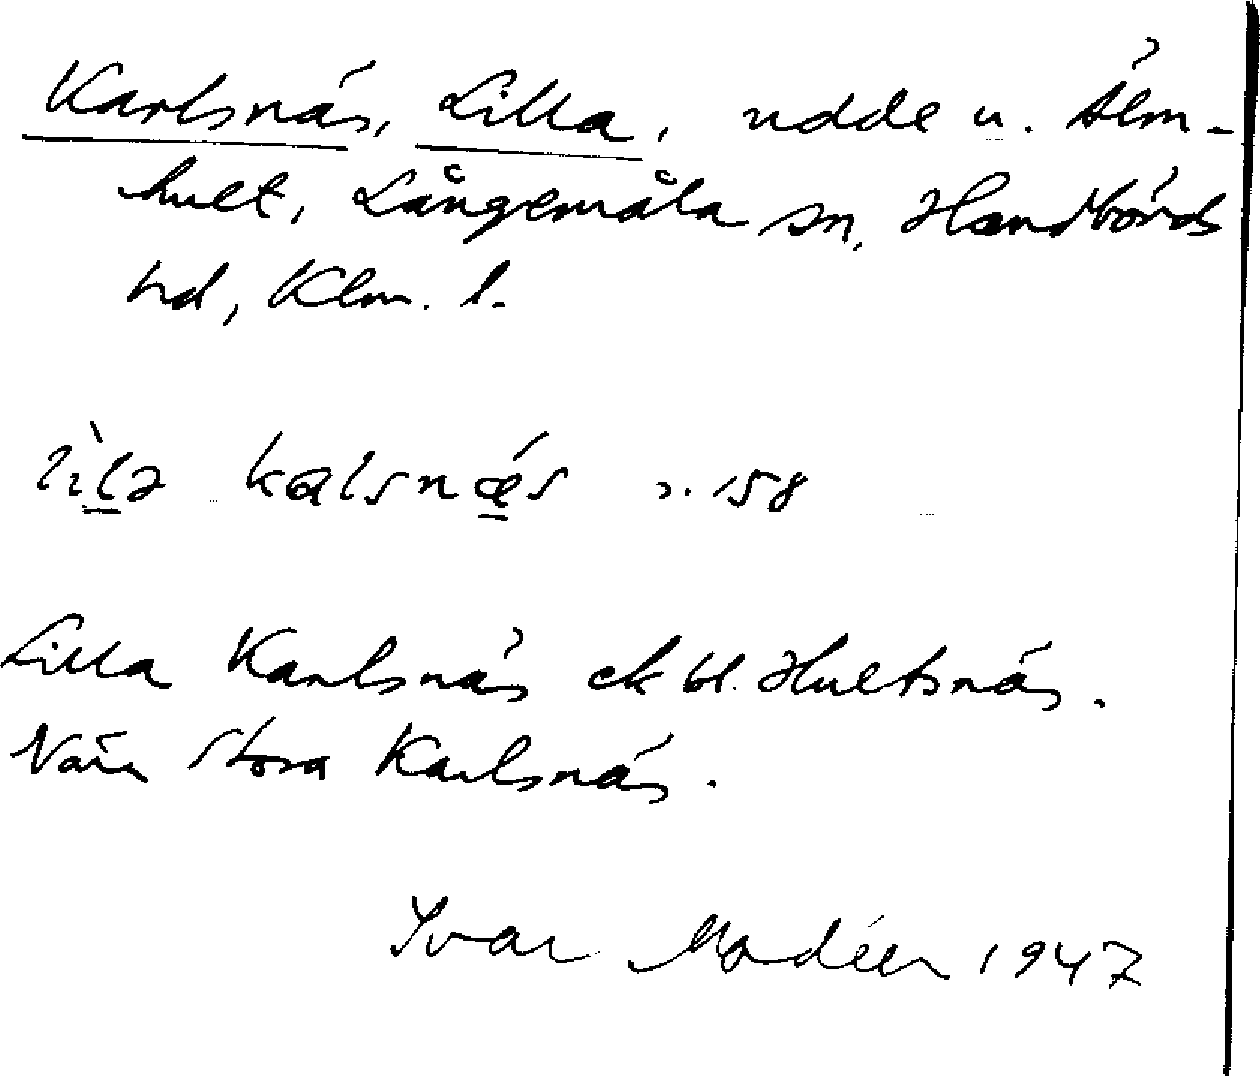 Karlsnäs, Lilla, udde u. Älm-
hult, Långemåla sn, Handbörds
hd, Klm. l.
kalsnæs s. 158
Lilla Karlsnäs ek bl. Hultsnäs.
Nära Stora Karlsnäs.
Ivar Modéer 1947